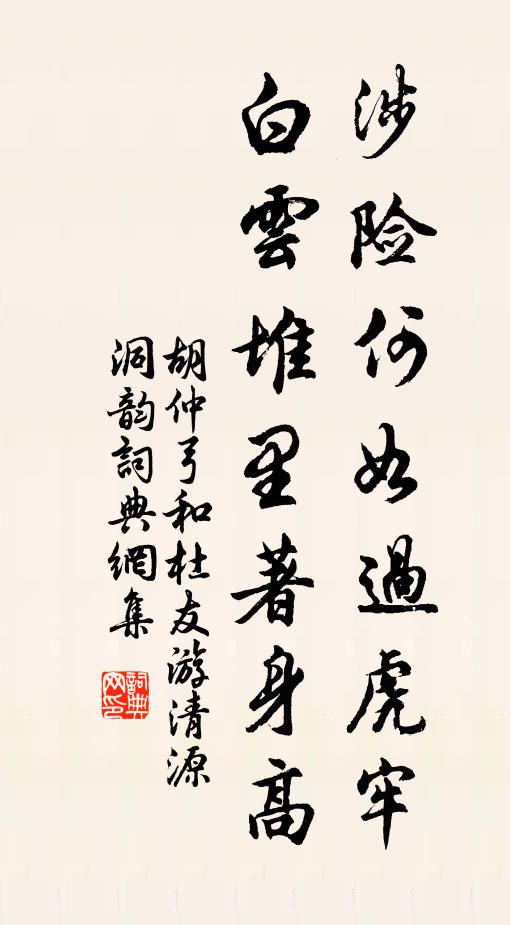 涉险何如過虎牢
白雲堆里著身高
胡仲弓和杜友游清源
洞韵詞典網集
詞典网印